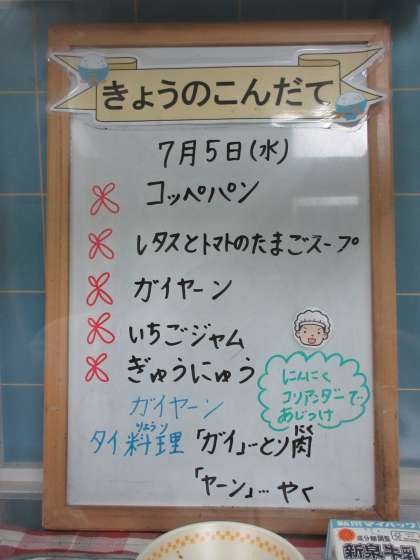 きょうのこんだて
7月5日(水)
コッペパン
レタスとトマトのたまごスープ
ガイヤーン
いちごジャム
ぎゅうにゅう
にんにく
コリアンダーで
あじつけ
ガイヤーン
りょうり
にく
タイ料理「ガイ」…とり肉
「ヤーン」…やく